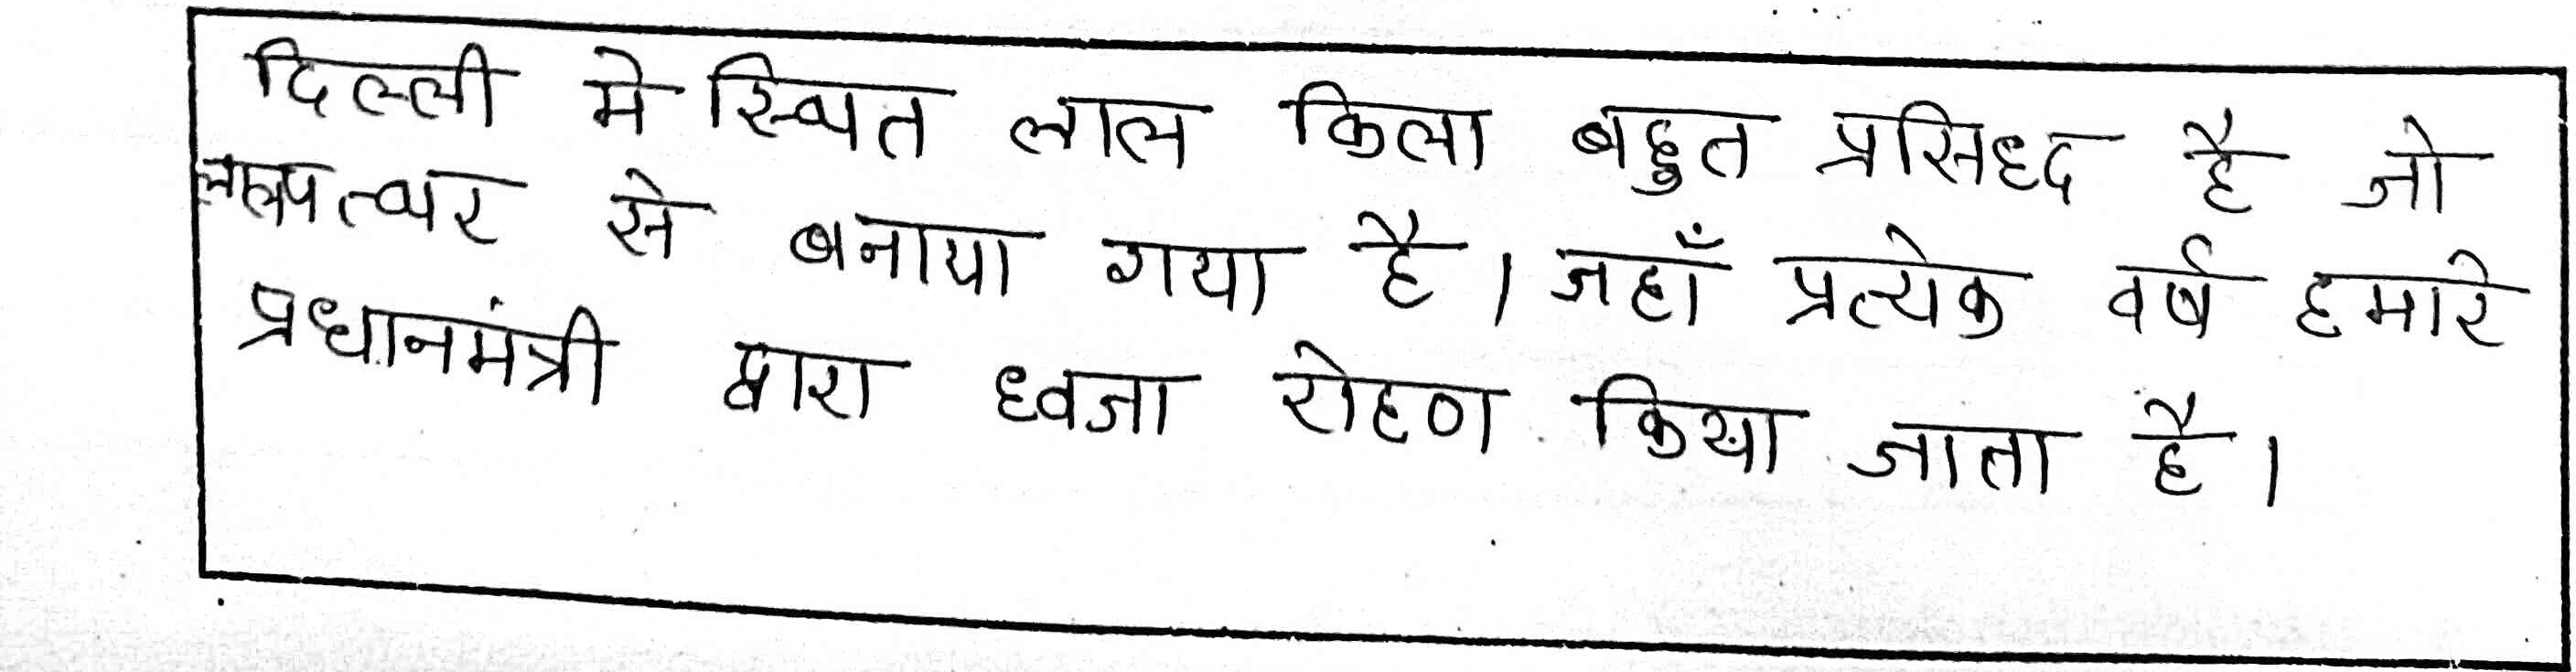 दिल्ली मे स्थित लाल किला बहुत प्रसिध्द है जो
लाल पत्थर से बनाया गया है। जहाँ प्रत्येक वर्ष हमारे
प्रधानमंत्री द्वारा ध्वजा रोहण किया जाता है।